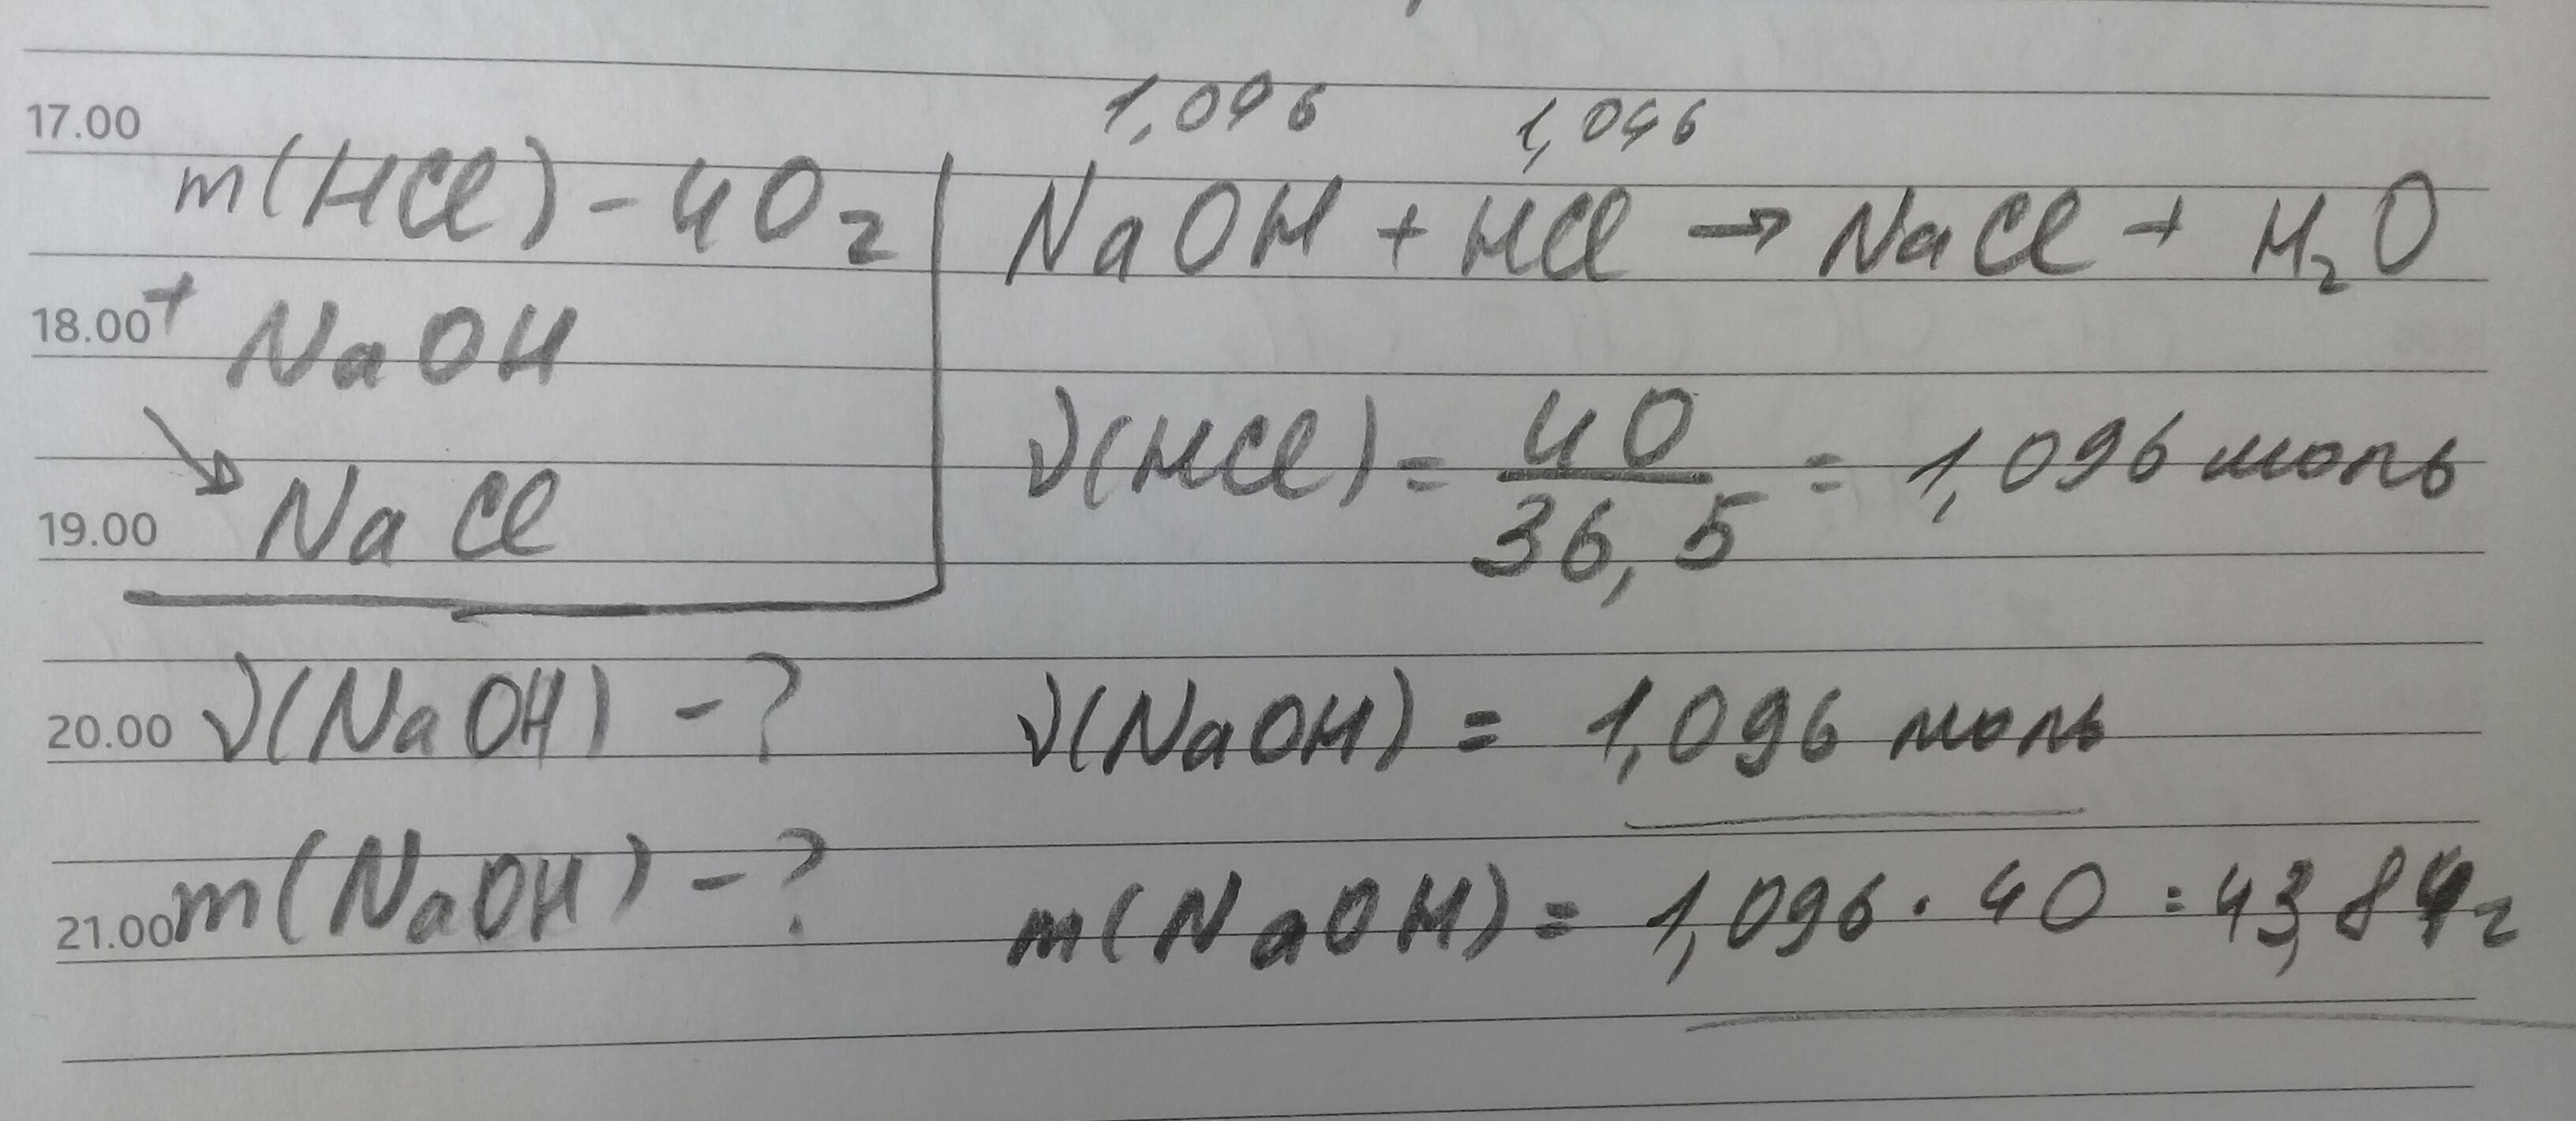 17.00
m(HCl) - 40г
18.00 + NaOH
NaCl
19.00
20.00 ν(NaOH) - ?
21.00 m(NaOH) - ?
1,096 1,096
NaOH + HCl → NaCl + H₂O
ν(HCl) = 40/36,5 = 1,096 моль
ν(NaOH) = 1,096 моль
m(NaOH) = 1,096 · 40 = 43,84г